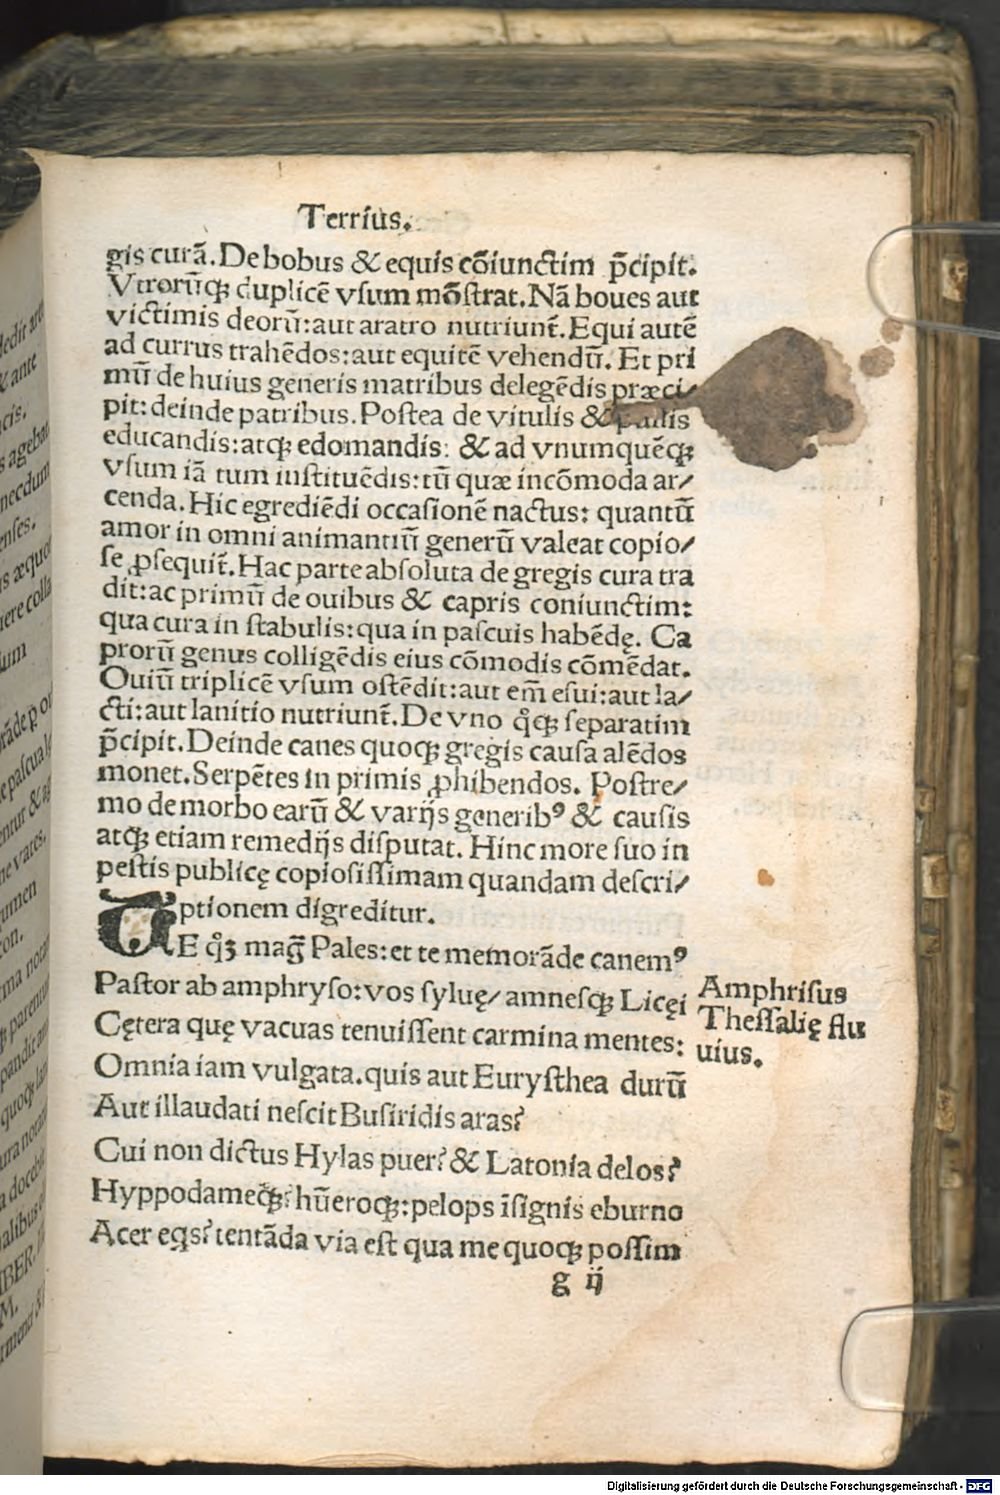 Terrius.
gis curā. De bobus & equis cōiunctim p̄cipit.
Vtrorūqꝫ duplicē vſum mōſtrat. Nā boues aut
victimis deorū: aut aratro nutriunt̄. Equi autē
ad currus trahēdos: aut equitē vehendū. Et pri
mū de huius generis matribus delegēdis præci⸗
pit: deinde patribus. Poſtea de vitulis & pullis
educandis: atqꝫ edomandis: & ad vnumquēqꝫ
vſum iā tum inſtituēdis: tū quæ incōmoda ar⸗
cenda. Hic egrediēdi occaſionē nactus: quantū
amor in omni animantiū generū valeat copio⸗
ſe ꝓſequit̄. Hac parte abſoluta de gregis cura tra
dit: ac primū de ouibus & capris coniunctim:
qua cura in ſtabulis: qua in paſcuis habēdę. Ca
prorū genus colligēdis eius cōmodis cōmēdat.
Ouiū triplicē vſum oſtēdit: aut em̄ eſui: aut la⸗
cti: aut lanitio nutriunt̄. De vno qͦqꝫ ſeparatim
p̄cipit. Deinde canes quoqꝫ gregis cauſa alēdos
monet. Serpētes in primis ꝓhibendos. Poſtre⸗
mo de morbo earū & varijs generibꝰ & cauſis
atqꝫ etiam remedijs diſputat. Hinc more ſuo in
peſtis publicę copioſiſſimam quandam deſcri⸗
ptionem digreditur.
TE qͦꝫ maḡ Pales: et te memorāde canemꝰ
Paſtor ab amphryſo: vos ſyluę/ amneſqꝫ Licęi
Cętera quę vacuas tenuiſſent carmina mentes:
Omnia iam vulgata. quis aut Euryſthea durū
Aut illaudati neſcit Buſiridis aras?
Cui non dictus Hylas puer? & Latonia delos?
Hyppodameqꝫ? hūeroqꝫ: pelops īſignis eburno
Acer eqs? tentāda via eſt qua me quoqꝫ poſſim
g ij
Amphriſus
Theſſalię flu
uius.
dedit
& ante
cis.
s agebat
necdum
enſes.
iere colla
lum
Digitalisierung gefördert durch die Deutsche Forschungsgemeinschaft - DFG